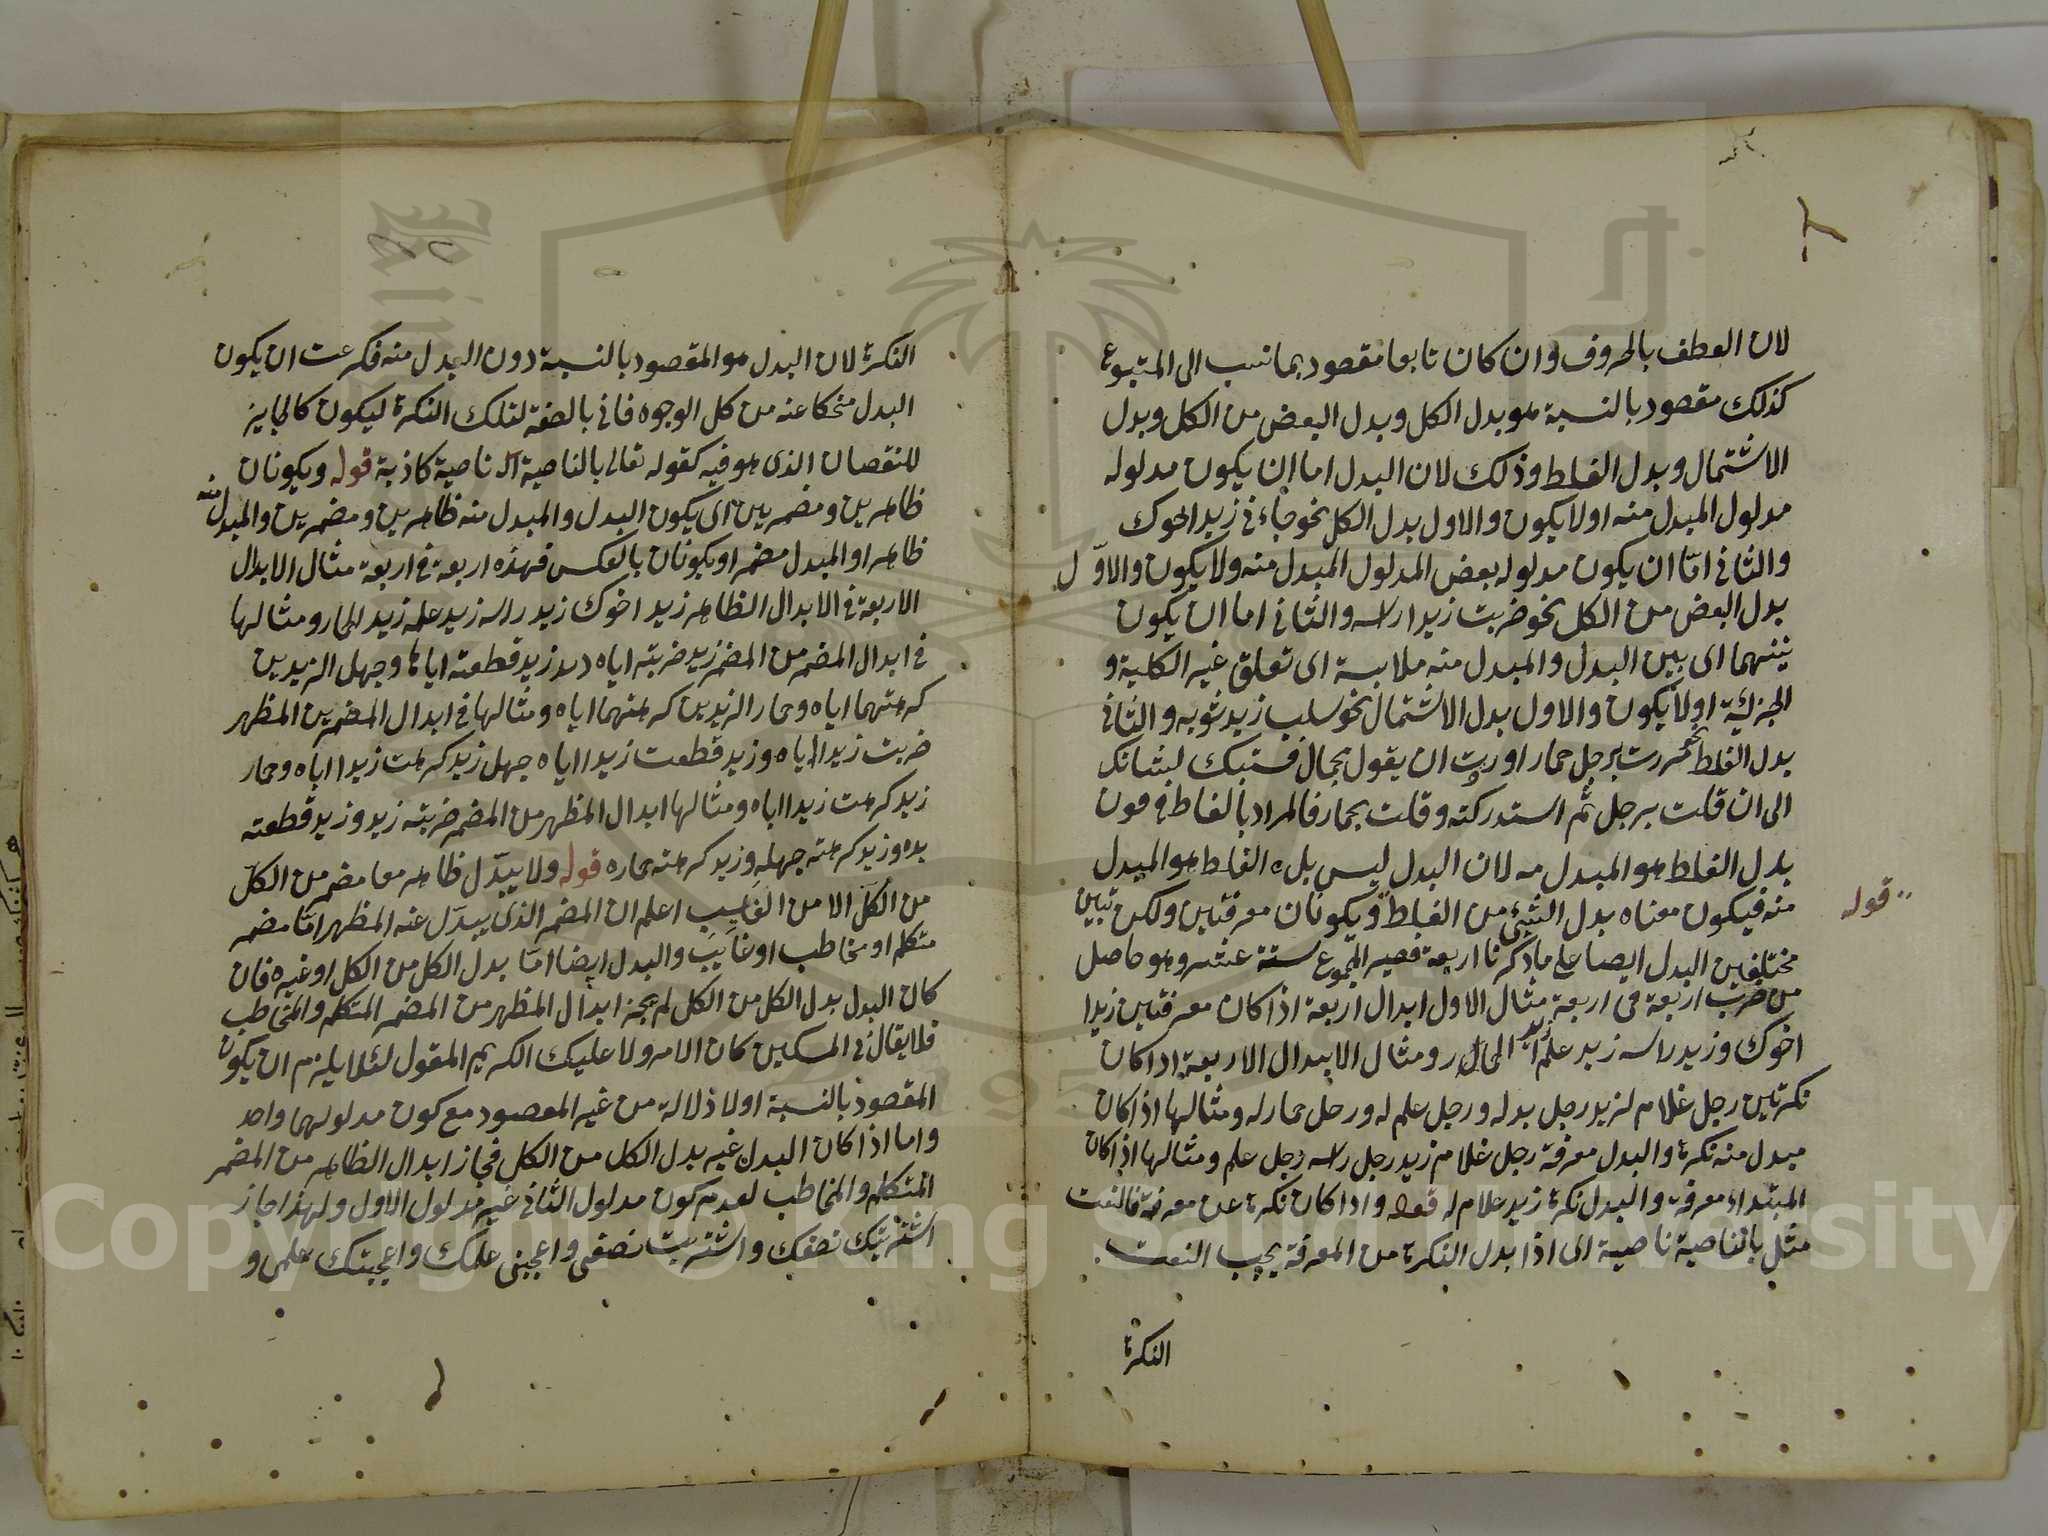 لان العطف بالحروف وان كان تابعا مقصود بما نسب الى المتبوع
كذلك مقصود بالنسبة هو بدل الكل وبدل البعض من الكل وبدل
الاشتمال وبدل الغلط وذلك لان البدل اما ان يكون مدلوله
مدلول المبدل منه اولا يكون والاول بدل الكل نحو جاءني زيد اخوك
والثاني امّا ان يكون مدلوله بعض المدلول المبدل منه ولا يكون والاوّل
بدل البعض من الكل نحو ضربت زيدا راسه والثاني اما ان يكون
بينهما اى بين البدل والمبدل منه ملابسة اى تعلق غير الكلية و
الجزئية اولا يكون والاول بدل الاشتمال نحو سلب زيد ثوبه والثاني
بدل الغلط نحو مررت برجل حمار اوردت ان يقول بحمال فسبك لسانك
الى ان قلت برجل ثم استدركته وقلت بحمار فالمراد بالغلط في قون
بدل الغلط هو المبدل مه لان البدل ليس بل ه الغلط هو المبدل
منه فيكون معناه بدل الشئ من الغلط ويكونان معرفتين ولكن تبين
قوله
مختلفين البدل ايصا على ما ذكرنا اربعة فصير المجموع ستة عشر وهو حاصل
من ضرب اربعة في اربعة مثال الاول ابدال اربعة اذا كان معرفتين زيدا
اخوك وزيد راسه زيد علمه الحمار ومثال الابدال الاربعة اذا كان
نكرتين رجل غلام لزيد رجل يد له ورجل علم له ورجل حمار له ومثالها اذا كان
مبدل منه نكرة والبدل معرفة رجل غلام زيد رجل راسه رجل علم ومثالها اذا كان
المبتداء معرفة والبدل نكرة زيد غلام له قوله واذا كان نكرة عن معرفة فالنعت
مثل بالناصية ناصية الى اذا بدل النكرة من المعرفة يجب النعت
النكرة
النكرة لان البدل هو المقصود بالنسبة دون المبدل منه فكرهت ان يكون
البدل منحكا عنه من كل الوجوه فاتى بالصفة لتلك النكرة ليكون كالجابز
للنقصان الذى هو فيه كقوله تعالى بالناصية ناصية كاذبة قوله ويكونان
ظاهرين ومضمرين اى يكون البدل والمبدل منه ظاهرين ومضمرين والمبدل منه
ظاهر او المبدل مضمر او يكونان بالعكس فهذه اربعة في اربعة مثال الابدال
الاربعة في الابدال الظاهر زيد اخوك زيد راسه زيد علمه زيد الحمار ومثالها
في ابدال المضمر من المضمر زيد ضربته اياه زيد قطعته اياها وجهل الزيدين
كرهتهما اياه وحمار الزيدين كرهتهما اياه ومثالها في ابدال المضمر من المظهر
ضربت زيدا اياه وزيد قطعت زيدا اياه جهل زيد كرهت زيدا اياه وحمار
زيد كرهت زيدا اياه ومثالها ابدال المظهر من المضمر ضربته زيد وزيد قطعته
يده وزيد كرهته جهله وزيد كرهته حماره قوله ولا يبدّل ظاهر معا مضمر من الكلّ
من الكلّ الا من الغايب اعلم ان المضمر الذى يبدل عنه المظهر امّا مضمر
متكلم او مخاطب او غايب والبدل ايضا امّا بدل الكل من الكل او غيره فان
كان البدل بدل الكل من الكل لم يجز ابدال المظهر من المضمر المتكلم والمخاطب
فلا يقال في المسكين كان الامر ولا عليك الكريم المقول لئلا يلزم ان يكون
المقصود بالنسبة اولا دلالة من غير المعصود مع كون مدلولهما واحد
واما اذا كان البدل غير بدل الكل من الكل فجاز ابدال الظاهر من المضمر
المتكلم والمخاطب لعدم كون مدلول الثاني غير مدلول الاول ولهذا جاز
اشتريتك نصفك واشتريت نصفى واعجبنى علمك واعجبتك علمى و
Copyright © King Saud University